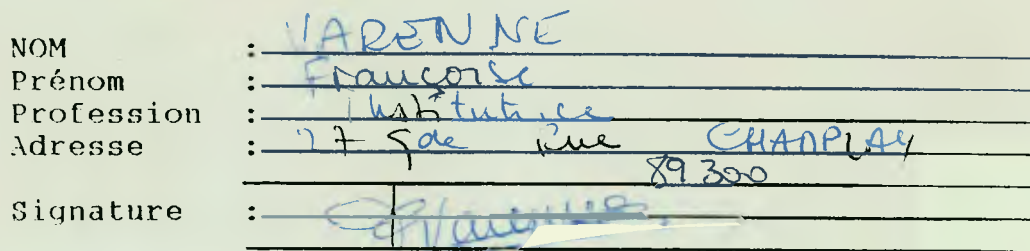 NOM : VARENNE
Prénom : Françoise
Profession : Institutrice
Adresse : 27 gde rue CHAMPLAY
89300
Signature :